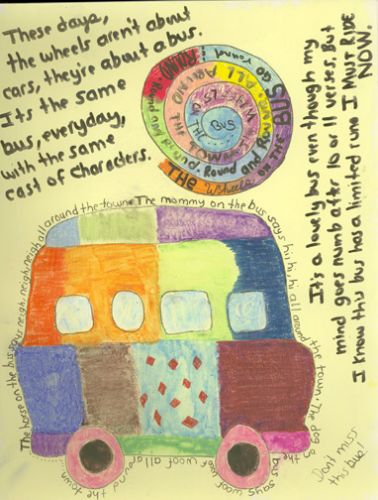 These days,
the wheels aren't about
cars, they're about a bus.
Its the same
bus, everyday,
with the same
cast of characters.
THE Wheels ON THE BUS GO round & ROUND
Round and Round ALL AROUND
THE TOWN
WHEELS ON THE BUS
It's a lovely bus even though my
mind goes numb after 10 or 11 verses. But
I know this bus has a limited run & I Must RIDE
NOW.
The horse on the bus says neigh, neigh, neigh all around the town. The mommy on the bus says hi, hi, hi all around the town. The dog on the bus says woof woof woof all around the town
Don't miss
this bus!